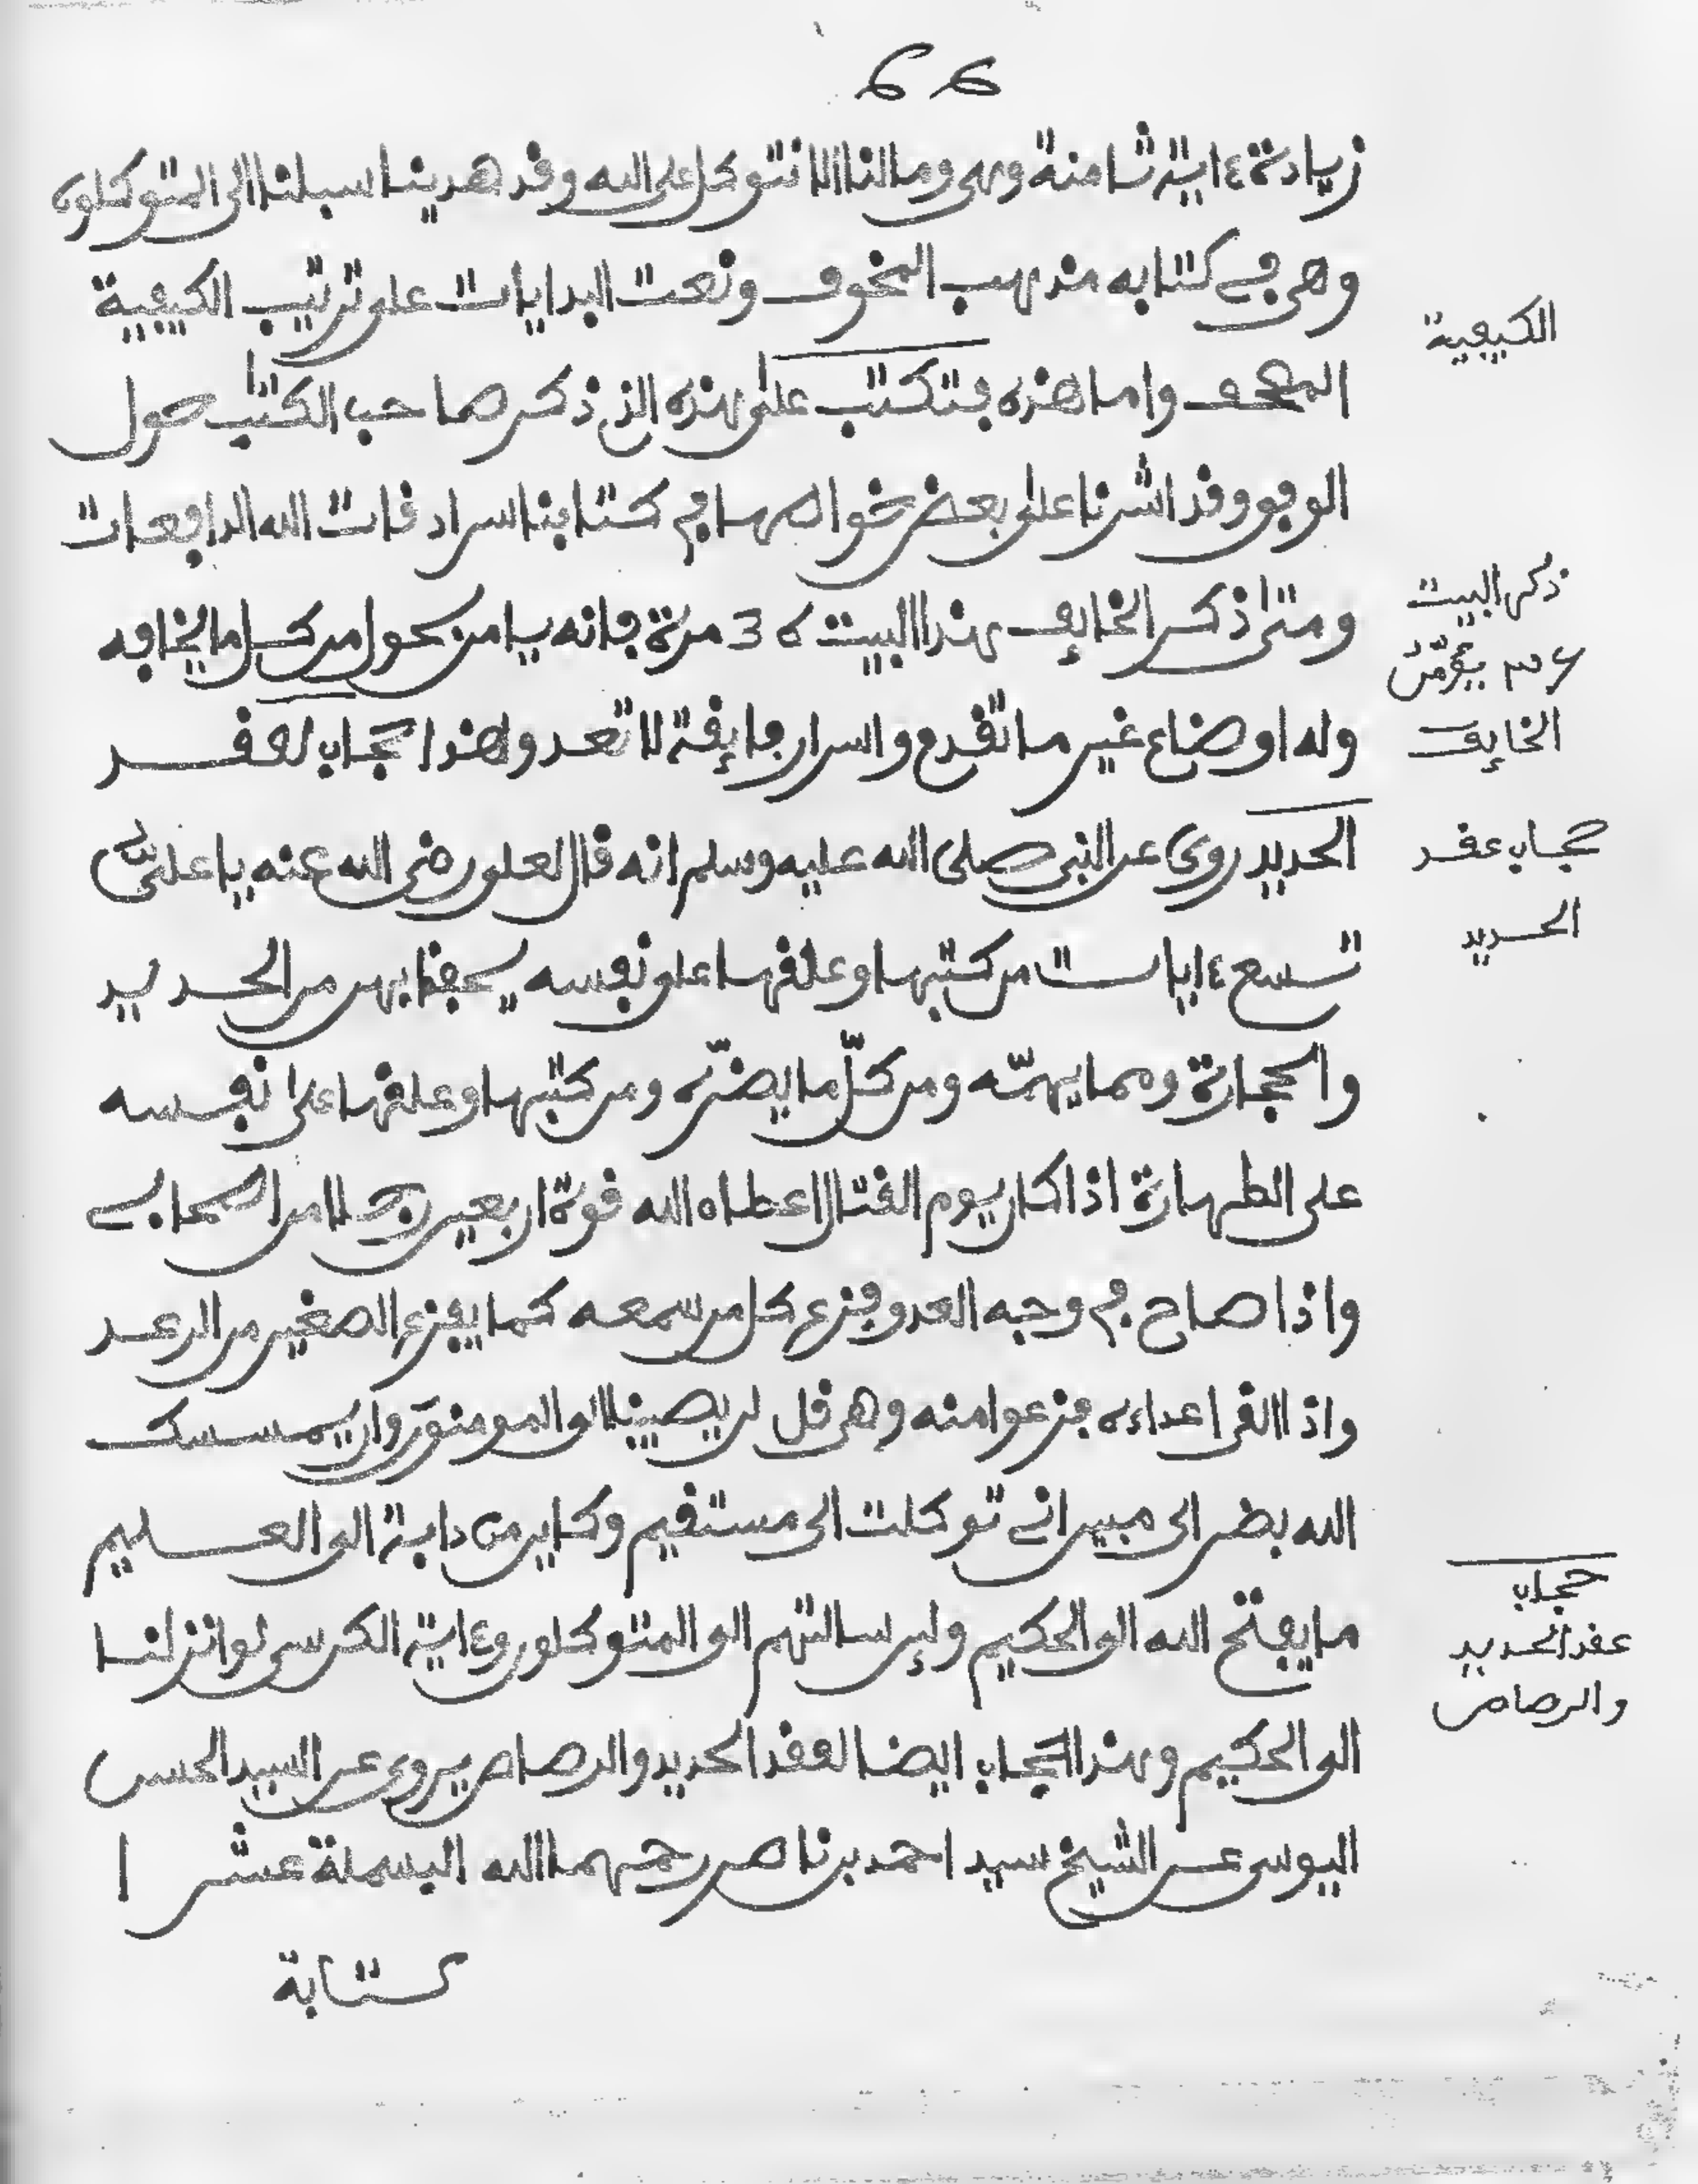 66
زيادة ءاية ثامنة وهى وما لنا الا نتوكل على الله وقد هدينا سبلنا الى المتوكلون
وهى في كتابه مذهب المخوف ونعت البدايات على ترتيب الكيفية
الكيفية
واما هذه فتكتب على هذه الذي ذكر صاحب الكتب حول
الوفق وقد اشرنا على بعض خواصها في كتابنا اسرادفات الله الدافعات
ومتى ذكر الخايف هذا البيت 36 مرة فانه يامن بحول من كل ما يخافه
ذكر البيت
٣٦ يؤمّن
الخايف
وله اوضاع غير ما تقدم واسرار فايقة لا تعد وهذا حجاب لعقد
الحديد روى عن النبي صلى الله عليه وسلم انه قال لعلى رضي الله عنه يا علىّ
حجاب عقد
الحديد
تسع ءايات من كتبها وعلقها على نفسه يحفظ بهن من الحديد
والحجارة ومما يهمّه ومن كلّ ما يضرّه ومن كتبها وعلقها على نفسه
على الطهارة اذا كان يوم القتال اعطاه الله قوة اربعين رجلا من اصحابي
واذا صاح في وجه العدو فزع كل من سمعه كما يفزع الصغير من الرعد
واذا القى اعداءه فزعوا منه وهى قل لن يصيبنا الى المومنون وان يمسسك
الله بضر الى مبين اني توكلت الى مستقيم وكاين من دابة الى العليم
ما يفتح الله الى الحكيم ولئن سالتهم الى المتوكلون وءاية الكرسي لو انزلنا
حجاب
عقد الحديد
والرصاص
الى الحكيم وهذا الحجاب ايضا لعقد الحديد والرصاص يروى عن السيد الحسن
اليوسي عن الشيخ سيد احمد بن ناصر رحمهما الله البسملة عشرا
كتابة